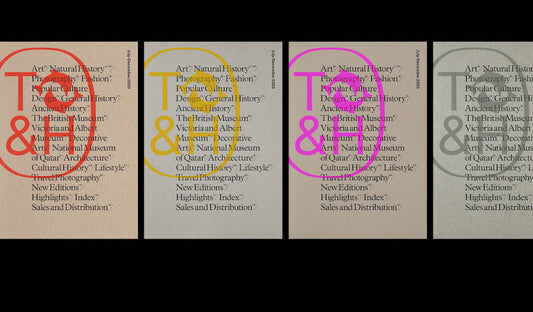 July–December 2020
T
&H
Art Natural History
Photography Fashion
Popular Culture
Design General History
Ancient History
The British Museum
Victoria and Albert
Museum Decorative
Arts National Museum
of Qatar Architecture
Cultural History Lifestyle
Travel Photography
New Editions
Highlights Index
Sales and Distribution
July–December 2020
T
&H
Art Natural History
Photography Fashion
Popular Culture
Design General History
Ancient History
The British Museum
Victoria and Albert
Museum Decorative
Arts National Museum
of Qatar Architecture
Cultural History Lifestyle
Travel Photography
New Editions
Highlights Index
Sales and Distribution
July–December 2020
T
&H
Art Natural History
Photography Fashion
Popular Culture
Design General History
Ancient History
The British Museum
Victoria and Albert
Museum Decorative
Arts National Museum
of Qatar Architecture
Cultural History Lifestyle
Travel Photography
New Editions
Highlights Index
Sales and Distribution
T
&H
Art Natural History
Photography
Popular Culture
Design General
Ancient History
The British Museum
Victoria and Albert
Museum Decorative
Arts National
of Qatar
Cultural History
Travel Photography
New Editions
Highlights Index
Sales and